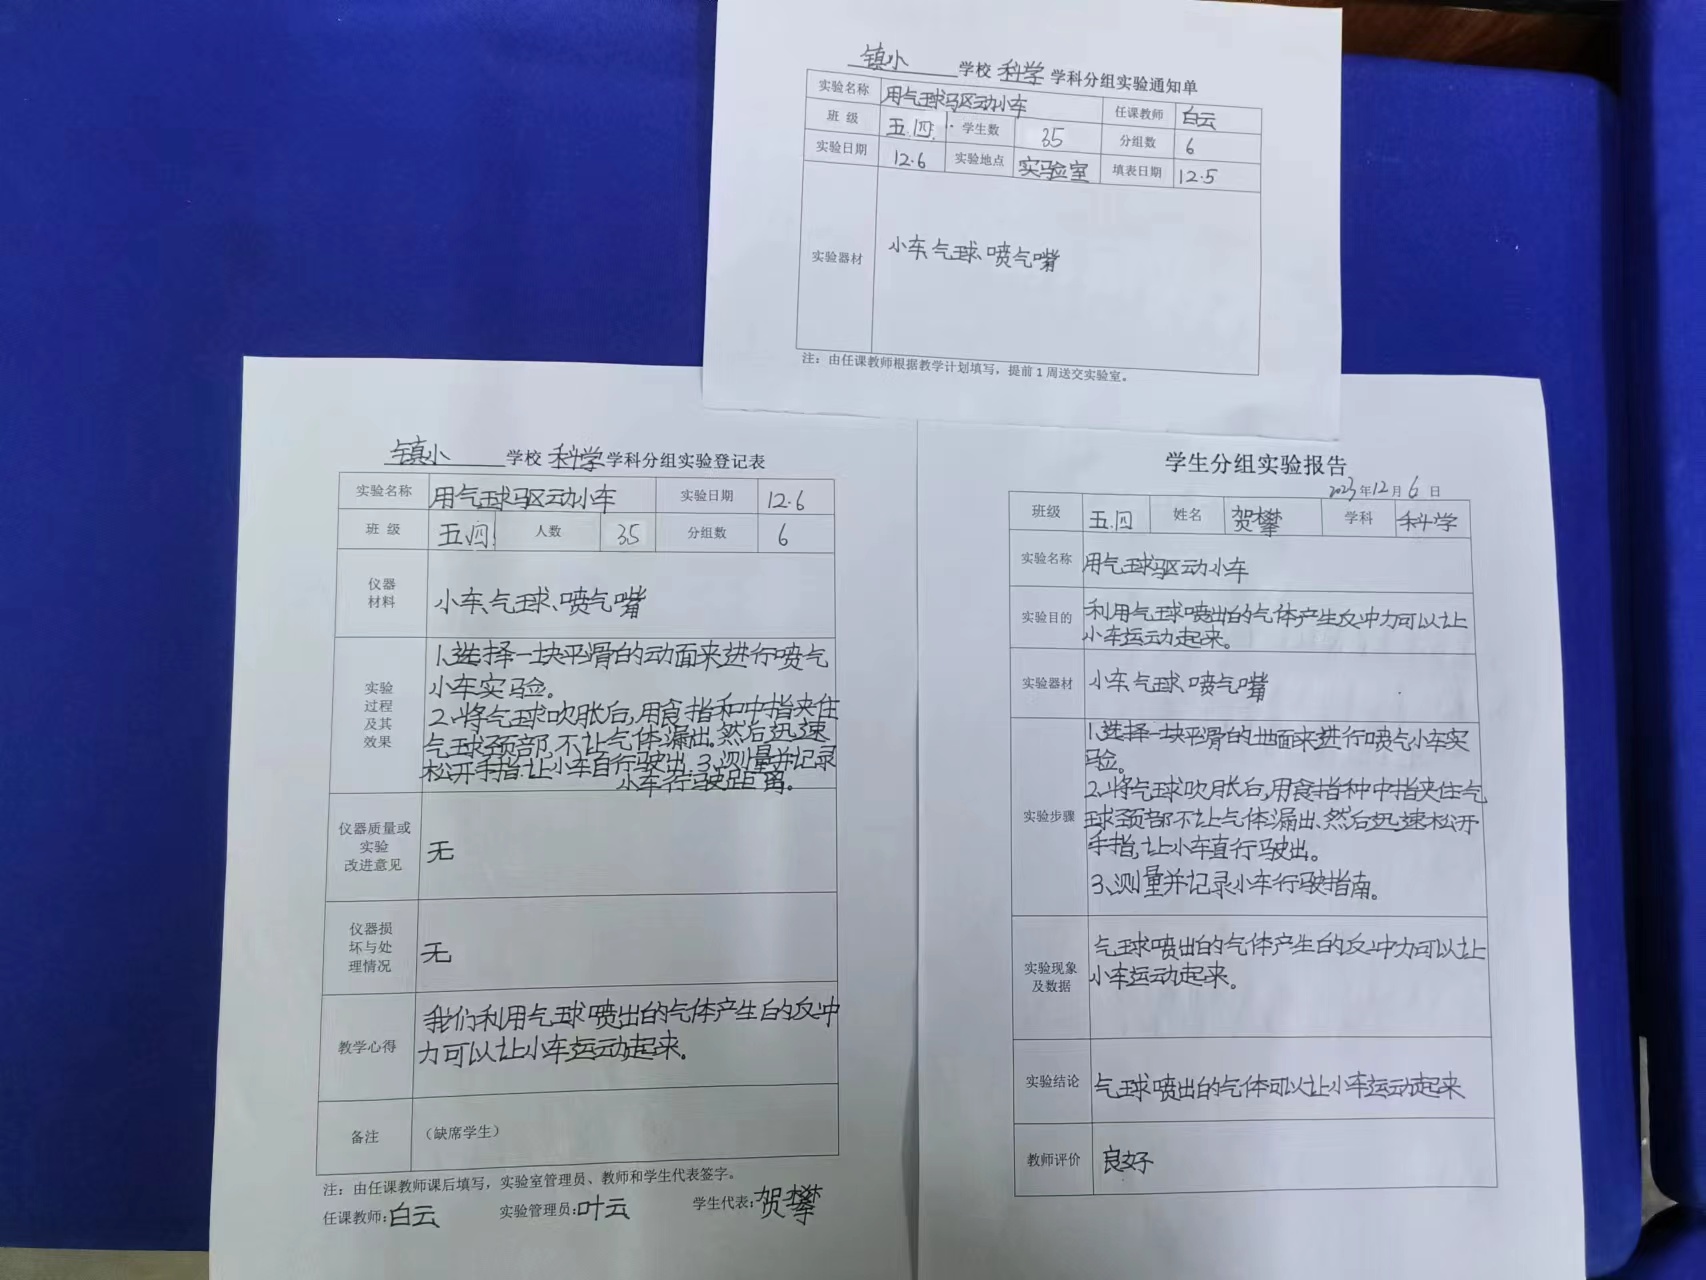 镇小 学校 科学 学科分组实验通知单
实验名称 用气球驱动小车 任课教师 白云
班 级 五.四. 学生数 35 分组数 6
实验日期 12.6 实验地点 实验室 填表日期 12.5
实验器材 小车、气球、喷气嘴
注：由任课教师根据教学计划填写，提前1周送交实验室。
镇小 学校 科学 学科分组实验登记表
实验名称 用气球驱动小车 实验日期 12.6
班 级 五.四 人数 35 分组数 6
仪器
材料
小车、气球、喷气嘴
实验
过程
及其
效果
1.选择一块平滑的动面来进行喷气
小车实验。
2.将气球吹胀后,用食指和中指夹住
气球颈部,不让气体漏出。然后迅速
松开手指.让小车自行驶出。3.测量并记录
小车行驶距离。
仪器质量或
实验
改进意见
无
仪器损
坏与处
理情况
无
教学心得
我们利用气球喷出的气体产生的反冲
力可以让小车运动起来。
备注 （缺席学生）
注：由任课教师课后填写，实验室管理员、教师和学生代表签字。
任课教师:白云 实验管理员:叶云 学生代表:贺攀
学生分组实验报告
2023年12月6日
班级 五.四 姓名 贺攀 学科 科学
实验名称 用气球驱动小车
实验目的
利用气球喷出的气体产生反冲力可以让
小车运动起来。
实验器材 小车、气球、喷气嘴
实验步骤
1.选择一块平滑的地面来进行喷气小车实
验。
2.将气球吹胀后,用食指种中指夹住气
球颈部不让气体漏出、然后迅速松开
手指,让小车直行驶出。
3、测量并记录小车行驶指南。
实验现象
及数据
气球喷出的气体产生的反冲力可以让
小车运动起来。
实验结论 气球喷出的气体可以让小车运动起来
教师评价 良好